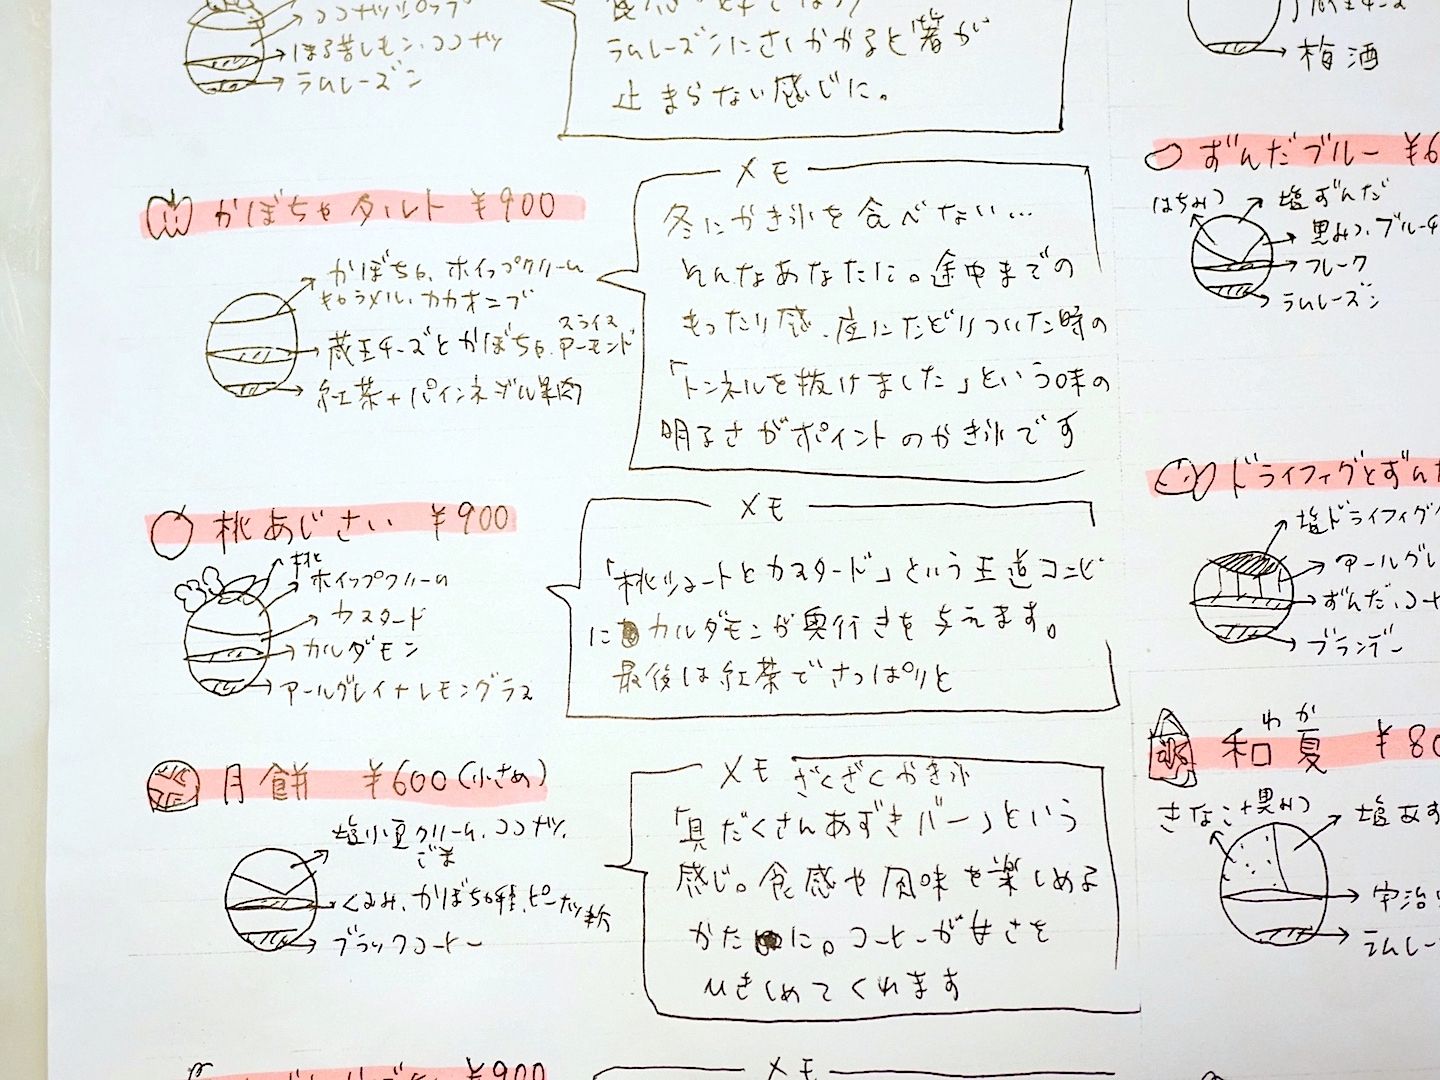 ココナッツシロップ
ほろ苦レモン、ココナッツ
ラムレーズン
ラムレーズンにさしかかると箸が
止まらない感じに。
かぼちゃタルト ¥900
かぼちゃ、ホイップクリーム
キャラメル、カカオニブ
蔵王チーズとかぼちゃ、スライスアーモンド
紅茶+パインネジル果肉
メモ
冬にかき氷を食べない…
そんなあなたに。途中までの
もったり感、底にたどりついた時の
「トンネルを抜けました」という味の
明るさがポイントのかき氷です
桃あじさい ¥900
桃
ホイップクリーム
カスタード
カルダモン
アールグレイ+レモングラス
メモ
「桃ジュートとカスタード」という王道コンビ
にカルダモンが奥行きを与えます。
最後は紅茶でさっぱりと
月餅 ¥600(小さめ)
塩小豆クリーム、ココナッツ、
ごま
くるみ、かぼちゃ種、ピーナッツ粉
ブラックコーヒー
メモ ざくざくかき氷
「具だくさんあずきバー」という
感じ。食感や風味を楽しめる
かたに。コーヒーが甘さを
ひきしめてくれます
¥900
メモ
梅酒
ずんだブルー ¥6
はちみつ
塩ずんだ
黒みつ、ブルーチ
フレーク
ラムレーズン
ドライフィグとずんだ
塩ドライフィグ
アールグレ
ずんだ、コーヒ
ブランデー
わか
和夏 ¥80
きなこ+黒みつ
塩あず
宇治
ラムレー